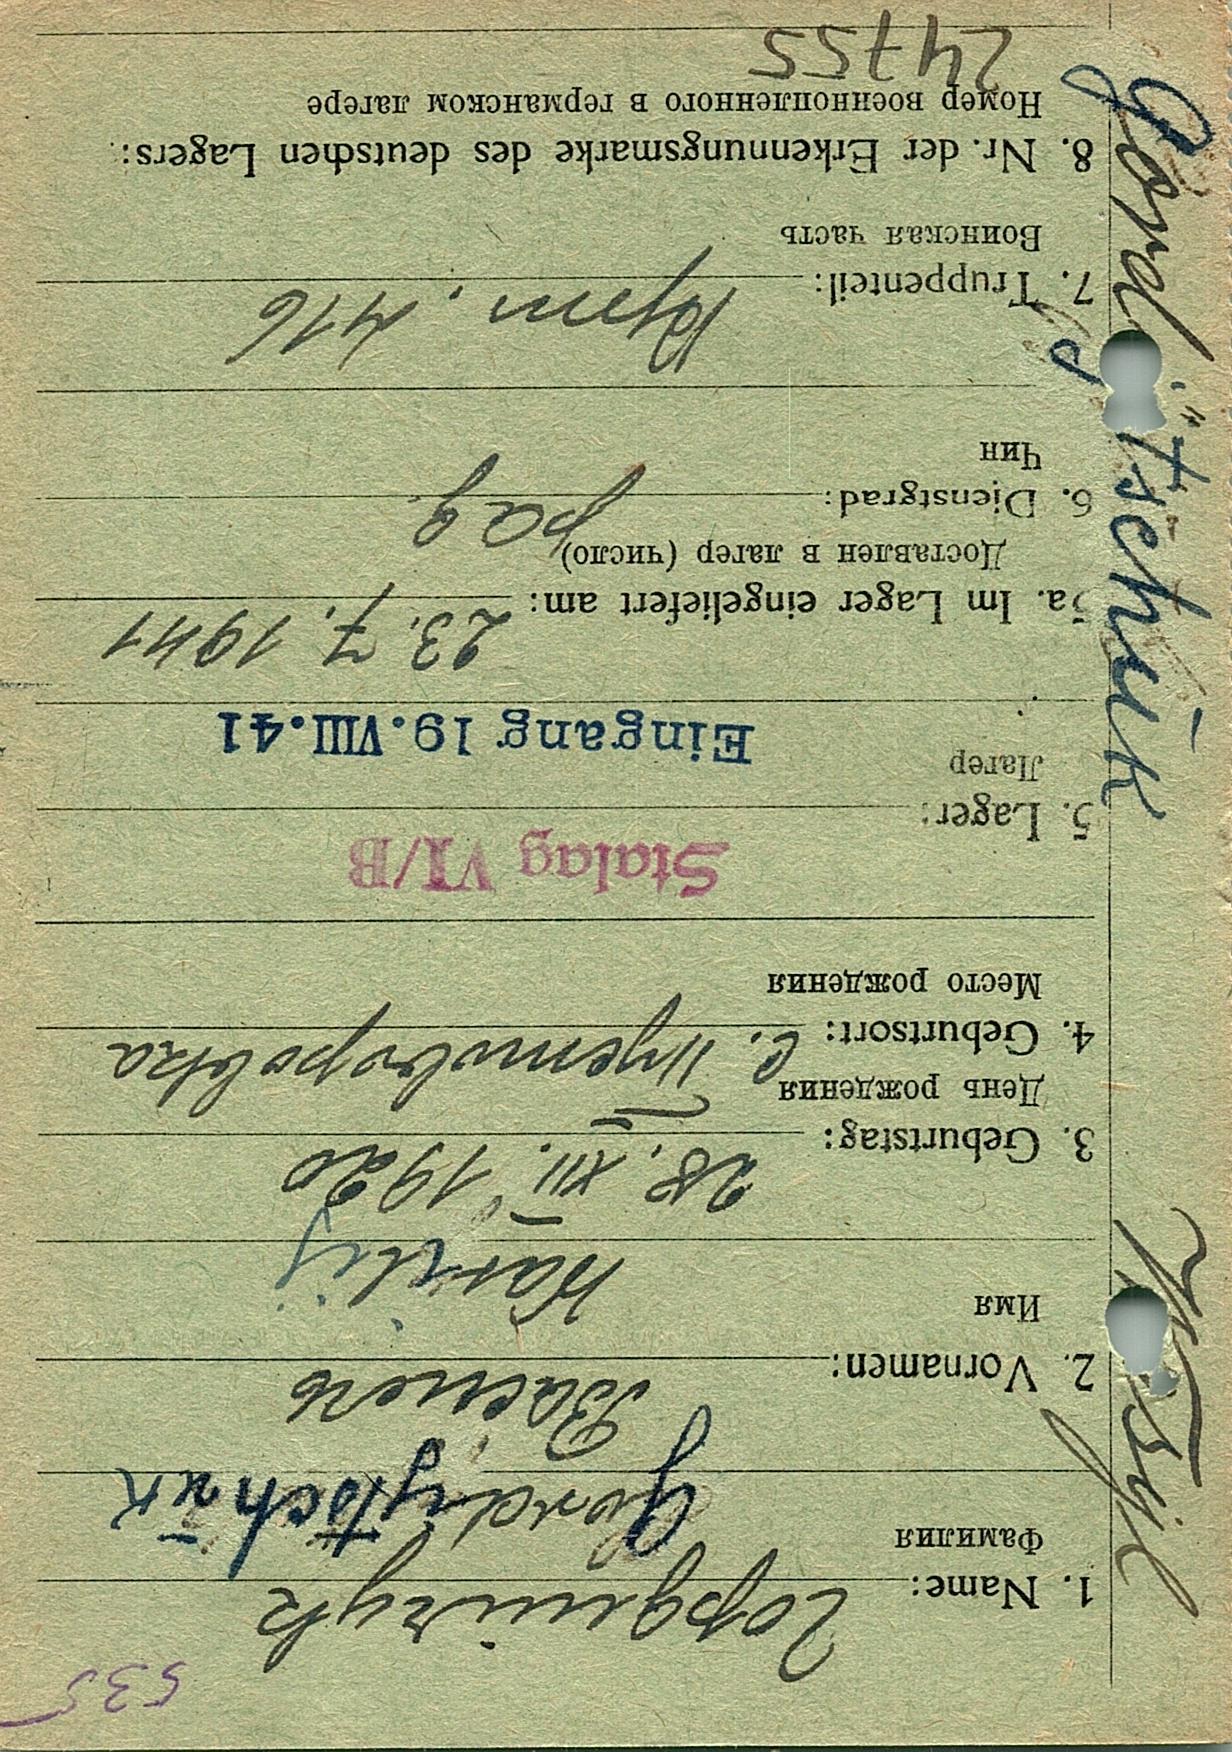 535
1. Name: Гордийчук
Фамилия Gordijtschuk
2. Vornamen: Василь
Имя Wasilij
3. Geburtstag: 28. XII. 1920
День рождения
4. Geburtsort: с.
Место рождения
Stalag VI/B
5. Lager:
Лагер
Eingang 19. VIII. 41
5a. Im Lager eingeliefert am: 23. 7. 1941
Доставлен в лагер (число)
6. Dienstgrad: ряд.
Чин
7. Truppenteil: 416
Воинская часть
8. Nr. der Erkennungsmarke des deutschen Lagers:
Номер военнопленного в германском лагере
24755
Gordijtschuk Wasyl